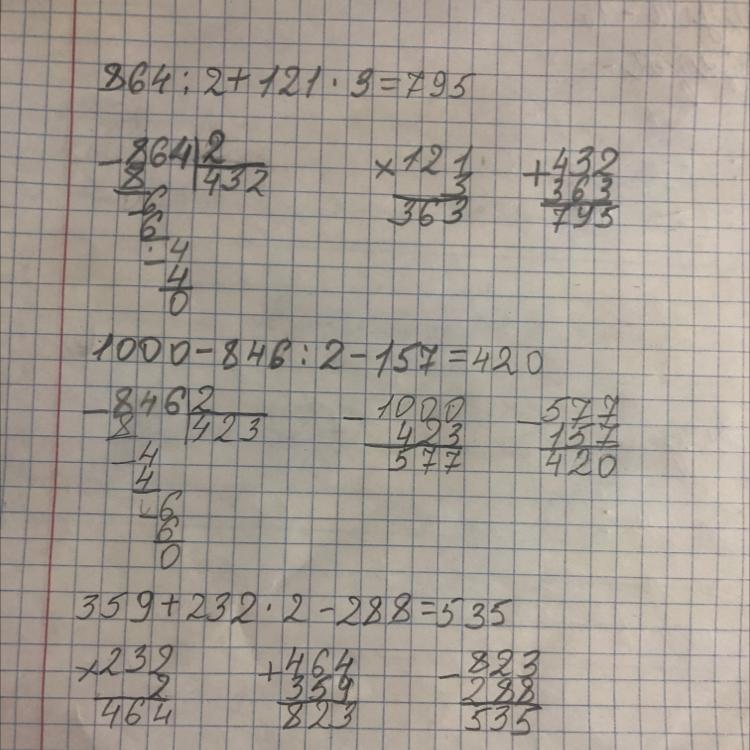 864 : 2 + 121 · 3 = 795
- 864 | 2
8 | 432
- 6
6
- 4
4
0
× 121
3
363
+ 432
363
795
1000 - 846 : 2 - 157 = 420
- 846 | 2
8 | 423
- 4
4
- 6
6
0
- 1000
423
577
- 577
157
420
359 + 232 · 2 - 288 = 535
× 232
2
464
+ 464
359
823
- 823
288
535